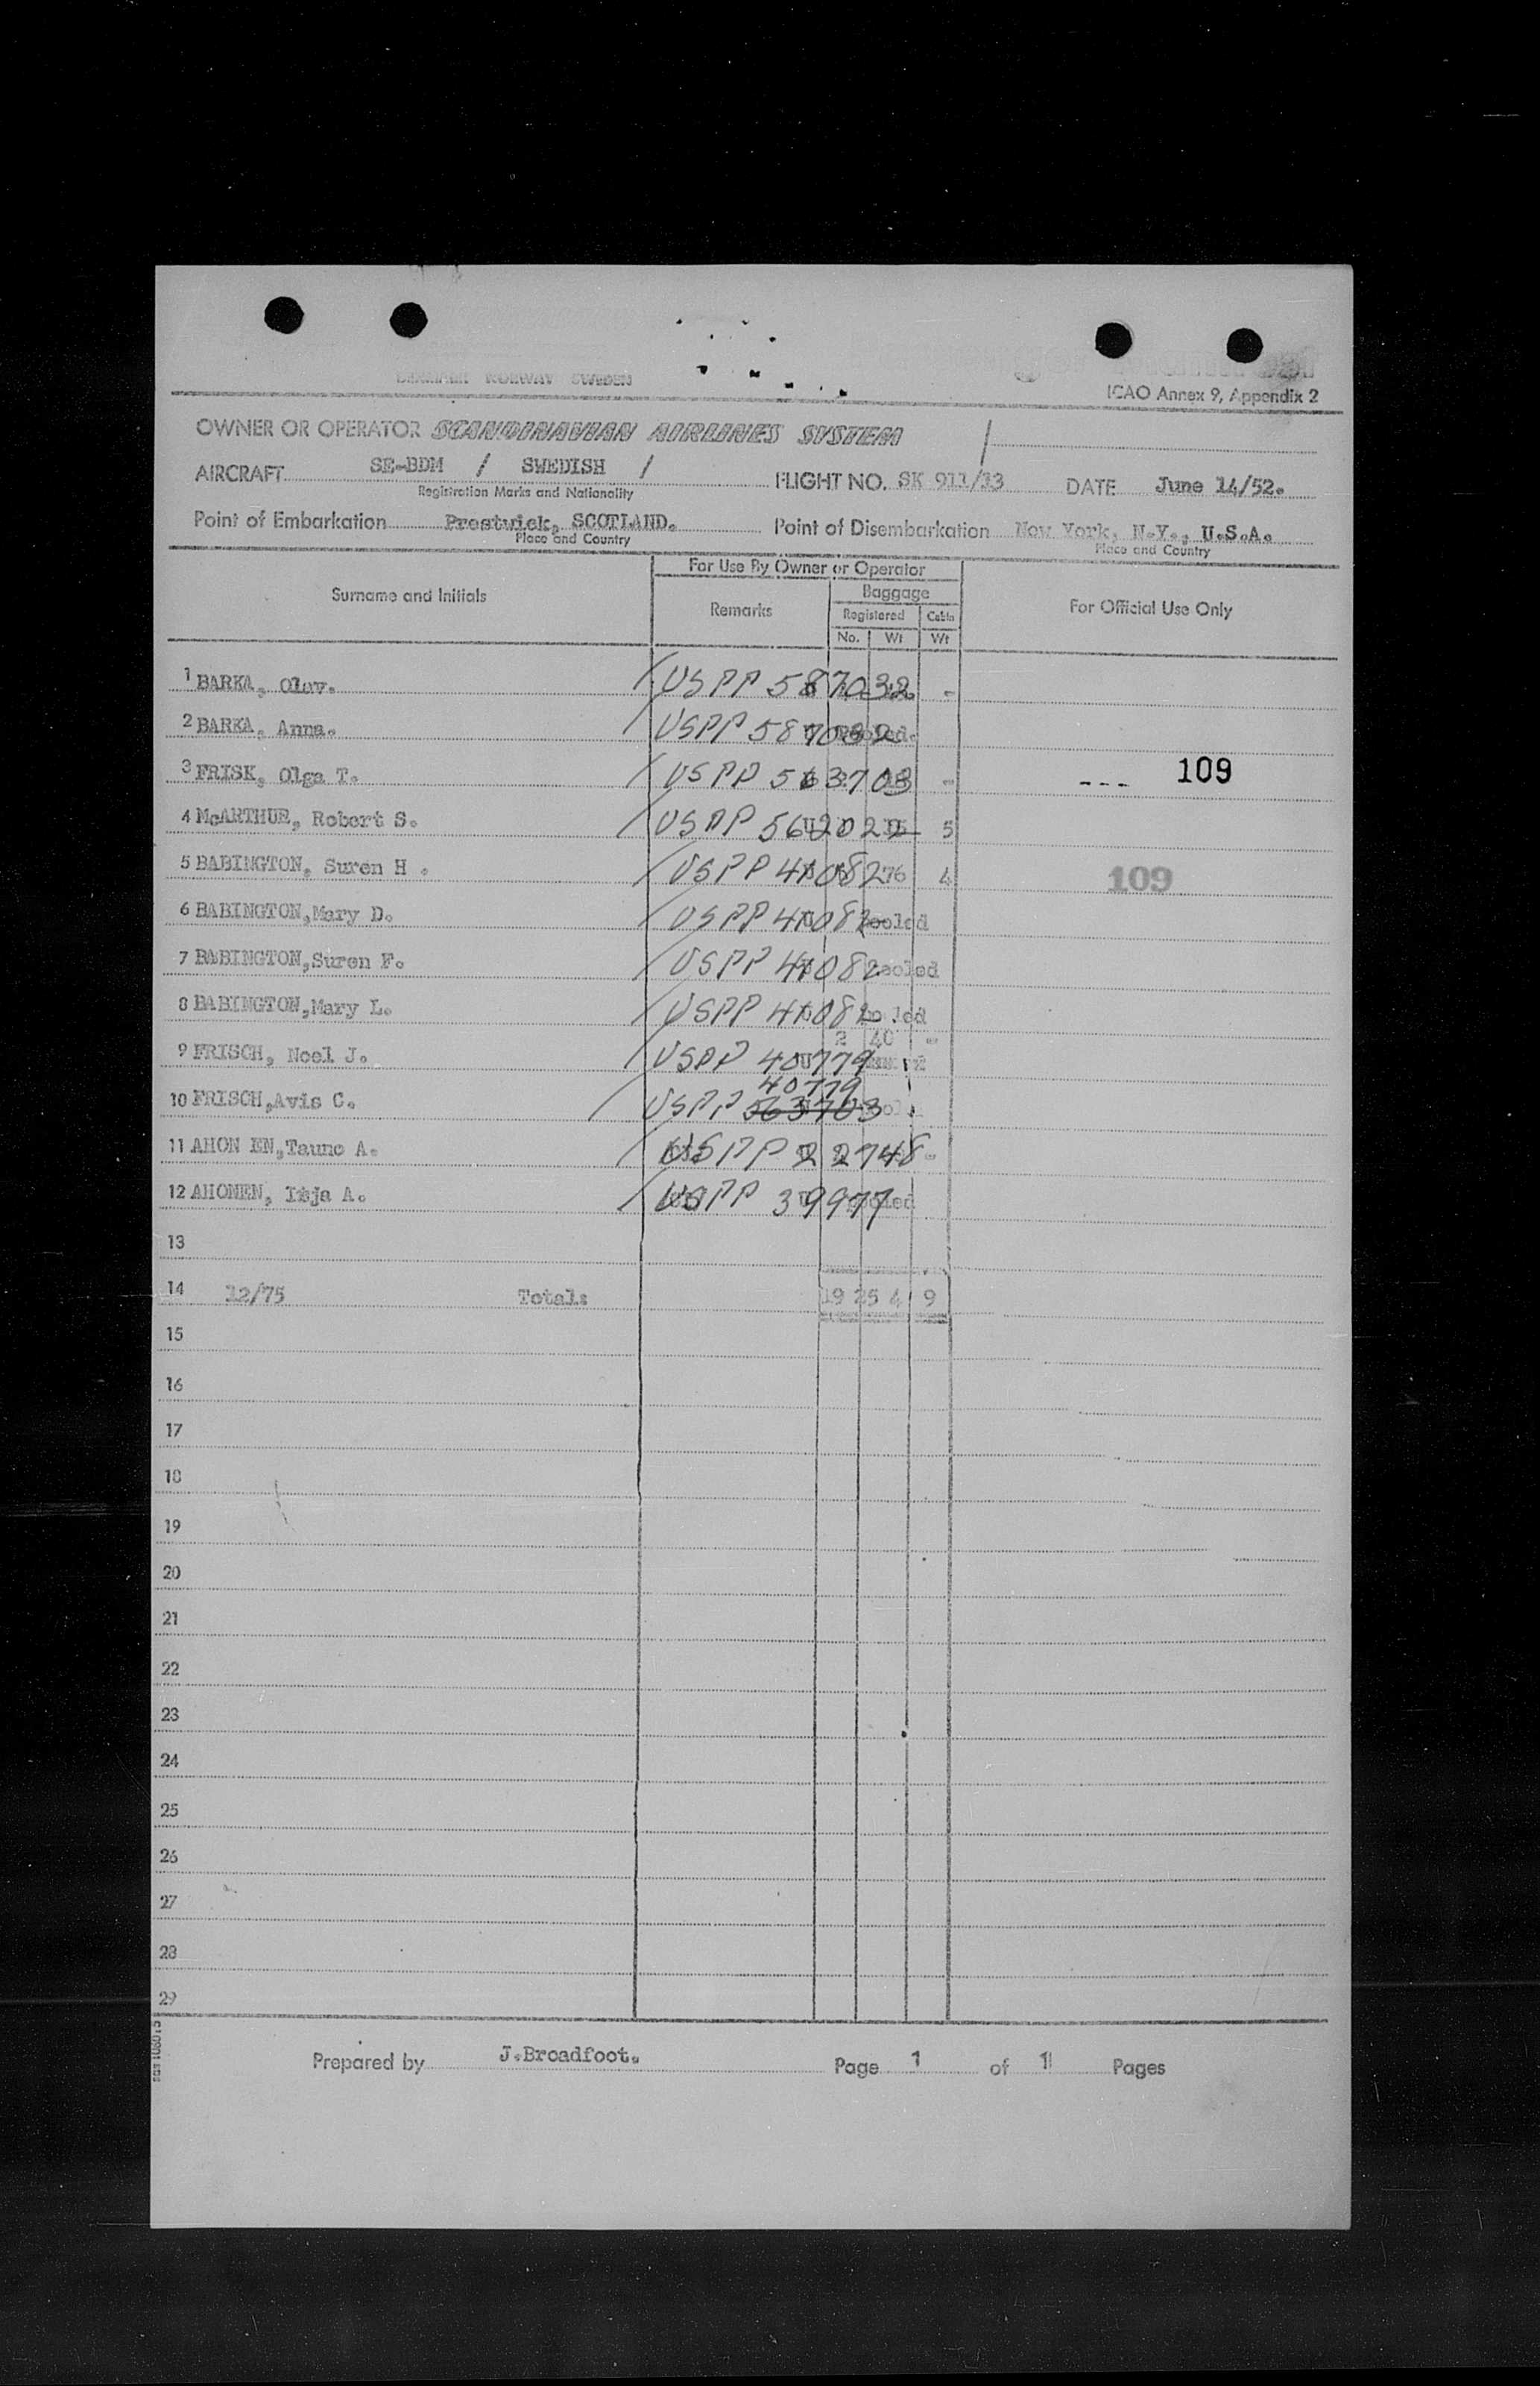 DENMARK NORWAY SWEDEN
ICAO Annex 9, Appendix 2
OWNER OR OPERATOR SCANDINAVIAN AIRLINES SYSTEM /
AIRCRAFT SE-BDM / SWEDISH / FLIGHT NO. SK 911/13 DATE June 14/52.
Registration Marks and Nationality
Point of Embarkation Prestwick, SCOTLAND. Point of Disembarkation New York, N.Y., U.S.A.
Place and Country Place and Country
For Use By Owner or Operator
Surname and Initials Remarks Baggage For Official Use Only
Registered Cabin
No. Wt Wt
1 BARKA, Olav. / USPP 587032 -
2 BARKA, Anna. / USPP 587032
3 FRISK, Olga T. / USPP 563703 - --- 109
4 McARTHUR, Robert S. / USPP 562022 5
5 BABINGTON, Suren H . / USPP 41082 76 4 109
6 BABINGTON,Mary D. / USPP 41082 pooled
7 BABINGTON,Suren F. / USPP 41082 pooled
8 BABINGTON,Mary L. / USPP 41082
2 40 -
9 FRISCH, Noel J. / USPP 40779
40779
10 FRISCH,Avis C. / USPP 563703
11 AHON EN,Tauno A. / USPP 22748 -
12 AHONEN, Irja A. / USPP 39977 pooled
13
14 12/75 Total: 19 25 4 9
15
16
17
18
19
20
21
22
23
24
25
26
27
28
29
Prepared by J.Broadfoot. Page 1 of 1 Pages